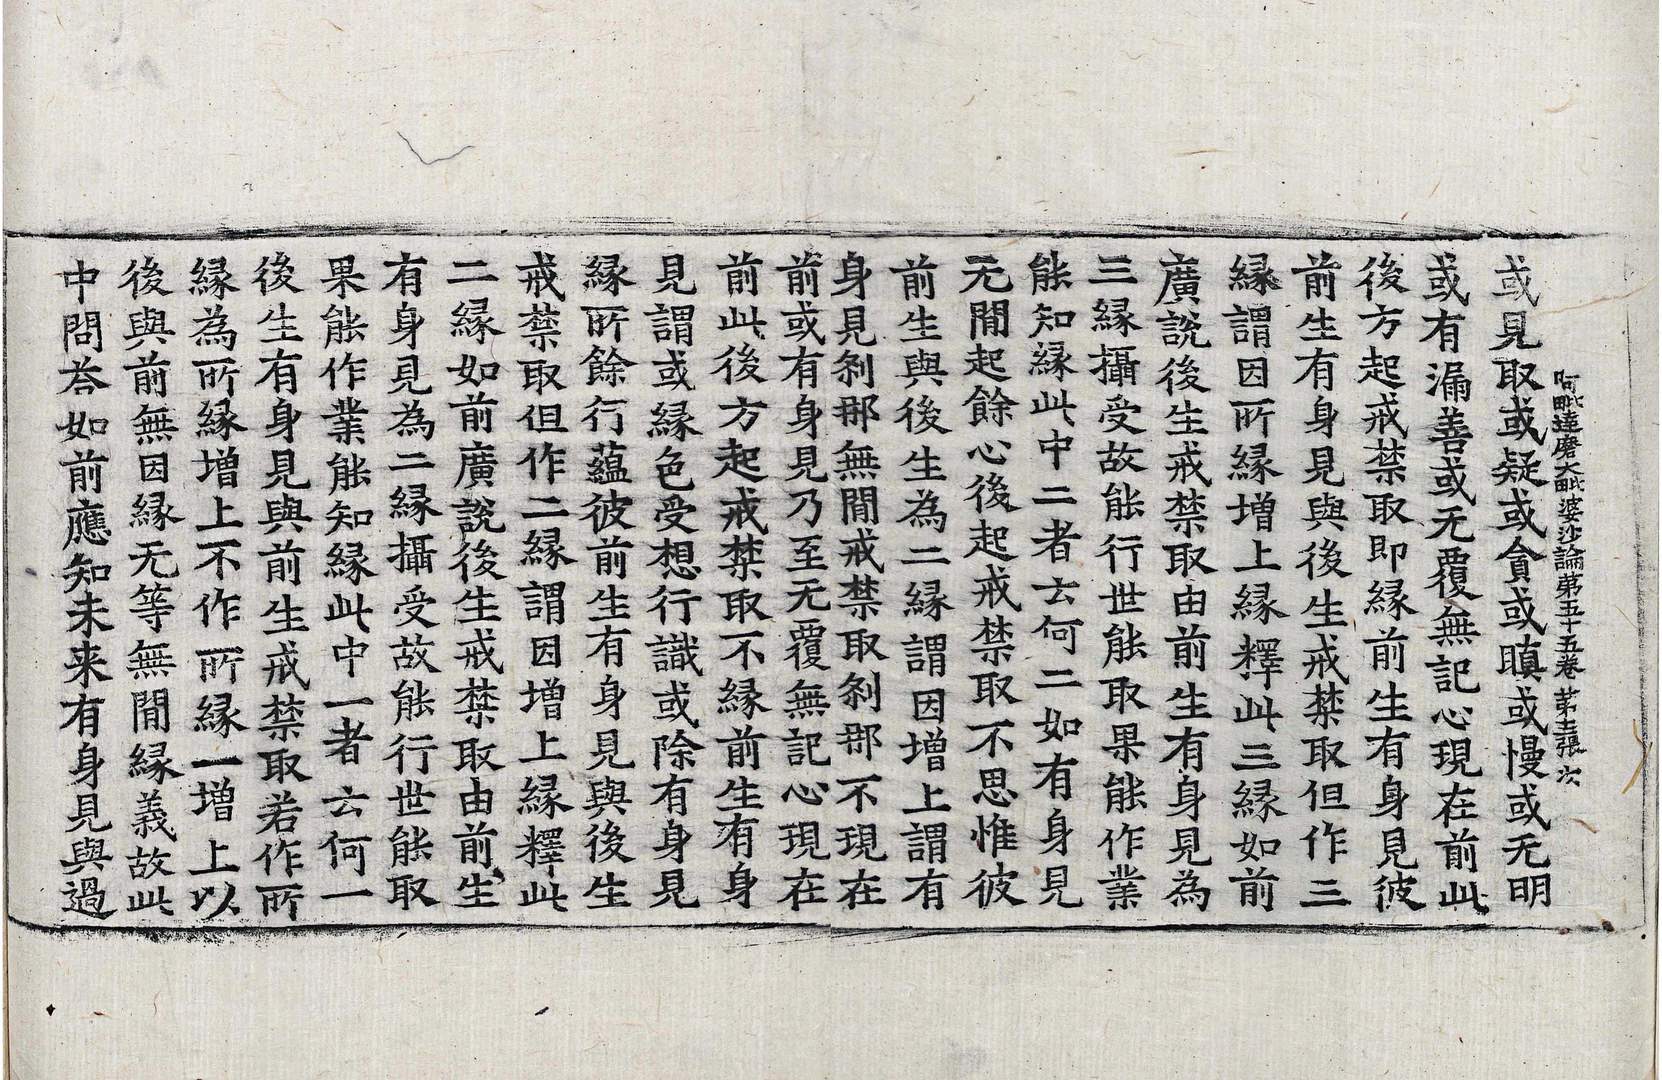 阿毗達磨大毗婆沙論第五十五卷 苐十三張 次
或見取或疑或貪或瞋或慢或无明
或有漏善或无覆無記心現在前此
後方起戒禁取即縁前生有身見彼
前生有身見與後生戒禁取但作三
縁謂因所縁增上縁釋此三縁如前
廣說後生戒禁取由前生有身見為
三縁攝受故能行世能取果能作業
能知縁此中二者云何二如有身見
无閒起餘心後起戒禁取不思惟彼
前生與後生為二縁謂因增上謂有
身見刹那無閒戒禁取刹那不現在
前或有身見乃至无覆無記心現在
前此後方起戒禁取不縁前生有身
見謂或縁色受想行識或除有身見
縁所餘行蘊彼前生有身見與後生
戒禁取但作二縁謂因增上縁釋此
二縁如前廣說後生戒禁取由前生
有身見為二縁攝受故能行世能取
果能作業能知縁此中一者云何一
後生有身見與前生戒禁取若作所
縁為所縁增上不作所縁一增上以
後與前無因縁无等無閒縁義故此
中問荅如前應知未来有身見與過